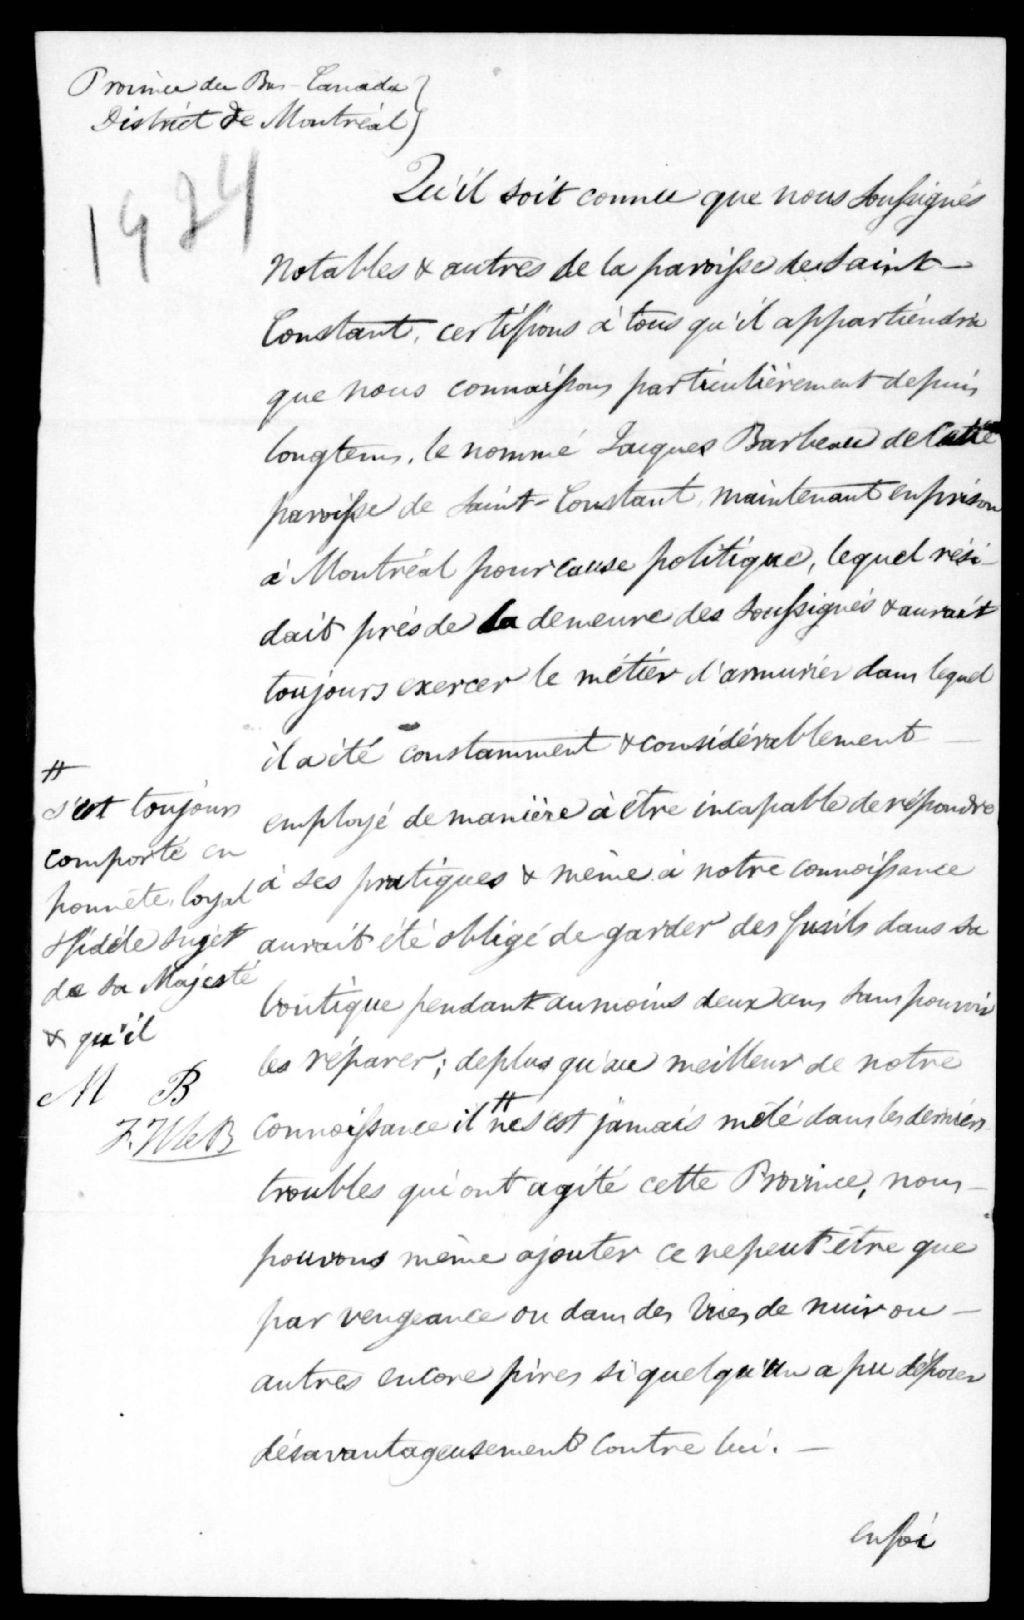 Province du Bas-Canada }
District de Montréal }
1924
Qu'il soit connu que nous soussignés
Notables & autres de la paroisse de Saint-
Constant, certifions à tous qu'il appartiendra
que nous connaissons particulièrement depuis
longtems, le nommé Jacques Barbeau de Cette
paroisse de Saint-Constant, maintenant en prison
à Montréal pour cause politique, lequel rési-
dait près de la demeure des soussignés & aurait
toujours exercer le métier d'armurier dans lequel
il a été constamment & considérablement
employé de manière à être incapable de répondre
à ses pratiques & même à notre connoissance
aurait été obligé de garder des fusils dans sa
boutique pendant aumoins deux ans sans pouvoir
les réparer; deplus qu'au meilleur de notre
Connoissance il # ne s'est jamais mêlé dans les derniers
troubles qui ont agité cette Province, nous
pouvons même ajouter ce ne peut être que
par vengeance ou dans des vues de nuir ou
autres encore pires si quelqu'un a pu déposer
désavantageusement Contre lui. —
en foi
#
s'est toujours
comporté en
honnête, loyal
& fidéle sujet
de sa Majesté
& qu'il
M B